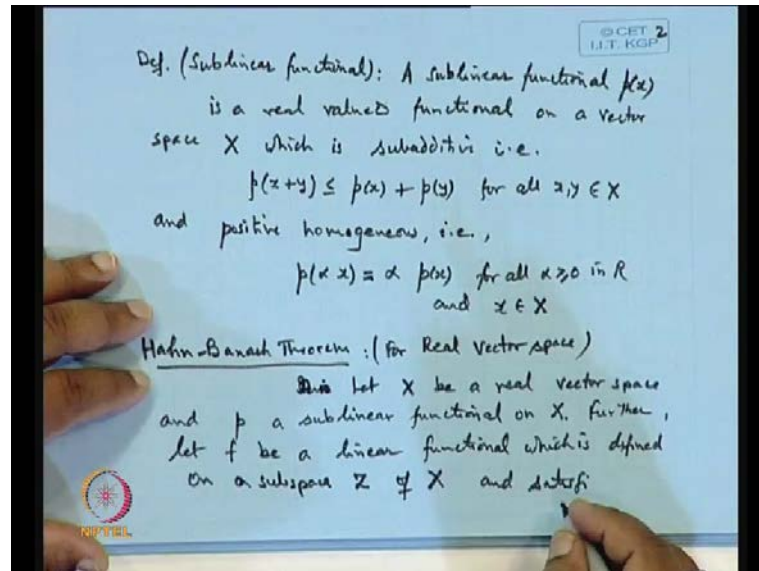 © CET
I.I.T. KGP
2
Def. (Sublinear functional): A sublinear functional p(x)
is a real valued functional on a vector
space X which is subadditive i.e.
p(x+y) ≤ p(x) + p(y) for all x, y ∈ X
and positive homogeneous, i.e.,
p(α x) = α p(x) for all α ≥ 0 in R
and x ∈ X
Hahn-Banach Theorem : (For Real vector space)
Let X be a real vector space
and p a sublinear functional on X. Further,
let f be a linear functional which is defined
on a subspace Z of X and satisfi
NPTEL